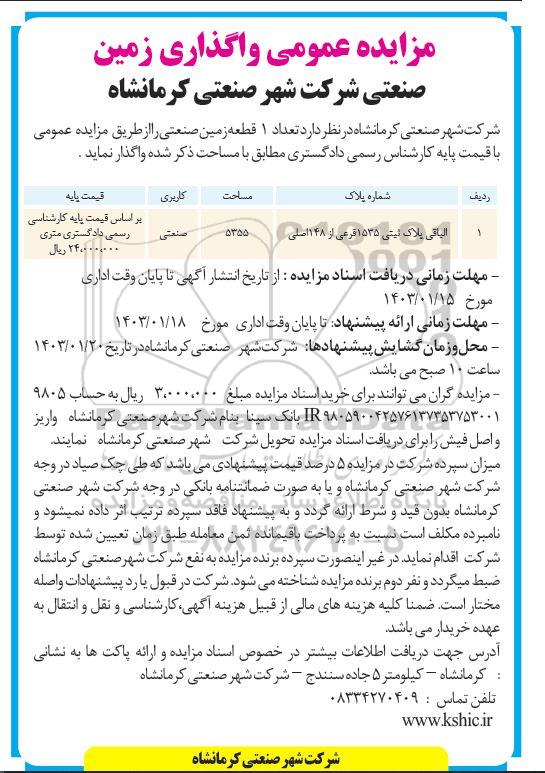 مزایده عمومی واگذاری زمین
صنعتی شرکت شهر صنعتی کرمانشاه
شرکت شهر صنعتی کرمانشاه در نظر دارد تعداد ۱ قطعه زمین صنعتی را از طریق مزایده عمومی
با قیمت پایه کارشناس رسمی دادگستری مطابق با مساحت ذکر شده واگذار نماید .
ردیف شماره پلاک مساحت کاربری قیمت پایه
۱ الباقی پلاک ثبتی ۱۵۳۵ فرعی از ۱۴۸ اصلی ۵۳۵۵ صنعتی بر اساس قیمت پایه کارشناسی
رسمی دادگستری متری
۲۴،۰۰۰،۰۰۰ ریال
– مهلت زمانی دریافت اسناد مزایده : از تاریخ انتشار آگهی تا پایان وقت اداری
مورخ ۱۴۰۳/۰۱/۱۵
– مهلت زمانی ارائه پیشنهاد: تا پایان وقت اداری مورخ ۱۴۰۳/۰۱/۱۸
– محل وزمان گشایش پیشنهادها: شرکت شهر صنعتی کرمانشاه در تاریخ ۱۴۰۳/۰۱/۲۰
ساعت ۱۰ صبح می باشد.
– مزایده گران می توانند برای خرید اسناد مزایده مبلغ ۳،۰۰۰،۰۰۰ ریال به حساب ۹۸۰۵
IR ۹۸۰۵۹۰۰۴۲۵۷۶۱۳۷۳۵۳۷۵۳۰۰۱ بانک سینا بنام شرکت شهر صنعتی کرمانشاه واریز
و اصل فیش را برای دریافت اسناد مزایده تحویل شرکت شهر صنعتی کرمانشاه نمایند.
میزان سپرده شرکت در مزایده ۵ درصد قیمت پیشنهادی می باشد که طی چک صیاد در وجه
شرکت شهر صنعتی کرمانشاه و یا به صورت ضمانتنامه بانکی در وجه شرکت شهر صنعتی
کرمانشاه بدون قید و شرط ارائه گردد و به پیشنهاد فاقد سپرده ترتیب اثر داده نمیشود و
نامبرده مکلف است نسبت به پرداخت باقیمانده ثمن معامله طبق زمان تعیین شده توسط
شرکت اقدام نماید. در غیر اینصورت سپرده برنده مزایده به نفع شرکت شهر صنعتی کرمانشاه
ضبط میگردد و نفر دوم برنده مزایده شناخته می شود. شرکت در قبول یا رد پیشنهادات واصله
مختار است. ضمنا کلیه هزینه های مالی از قبیل هزینه آگهی،کارشناسی و نقل و انتقال به
عهده خریدار می باشد.
آدرس جهت دریافت اطلاعات بیشتر در خصوص اسناد مزایده و ارائه پاکت ها به نشانی
: کرمانشاه – کیلومتر ۵ جاده سنندج – شرکت شهر صنعتی کرمانشاه
تلفن تماس : ۰۸۳۳۴۲۷۰۴۰۹
www.kshic.ir
شرکت شهر صنعتی کرمانشاه